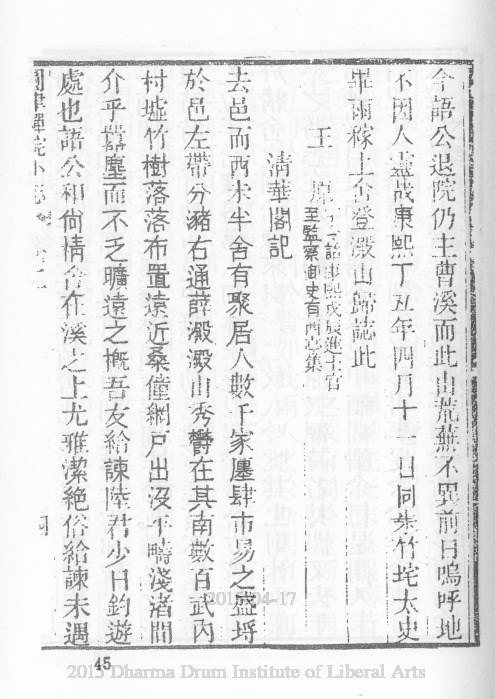 今語公退院仍主曹溪而此山荒蕪不異前日嗚呼地
不因人靈哉康熙丁丑年四月十一日同朱竹垞太史
單雨稼上舍登澱山歸誌此
清華閣記
王原
康熙戊辰進士官
至監察御史有西亭集
去邑而西未半舍有聚居人數千家廛肆市易之盛埒
於邑左帶分瀦右通薛澱澱山秀鬱在其南數百武內
村墟竹樹落落布置遠近桑僮網戶出沒平疇淺渚間
介乎囂塵而不乏曠遠之概吾友給諫陸君少日釣遊
處也語公和尙精舍在溪之上尤雅潔絶俗給諫未遇
禪院小志 卷二
45
2015-04-17
2015 Dharma Drum Institute of Liberal Arts